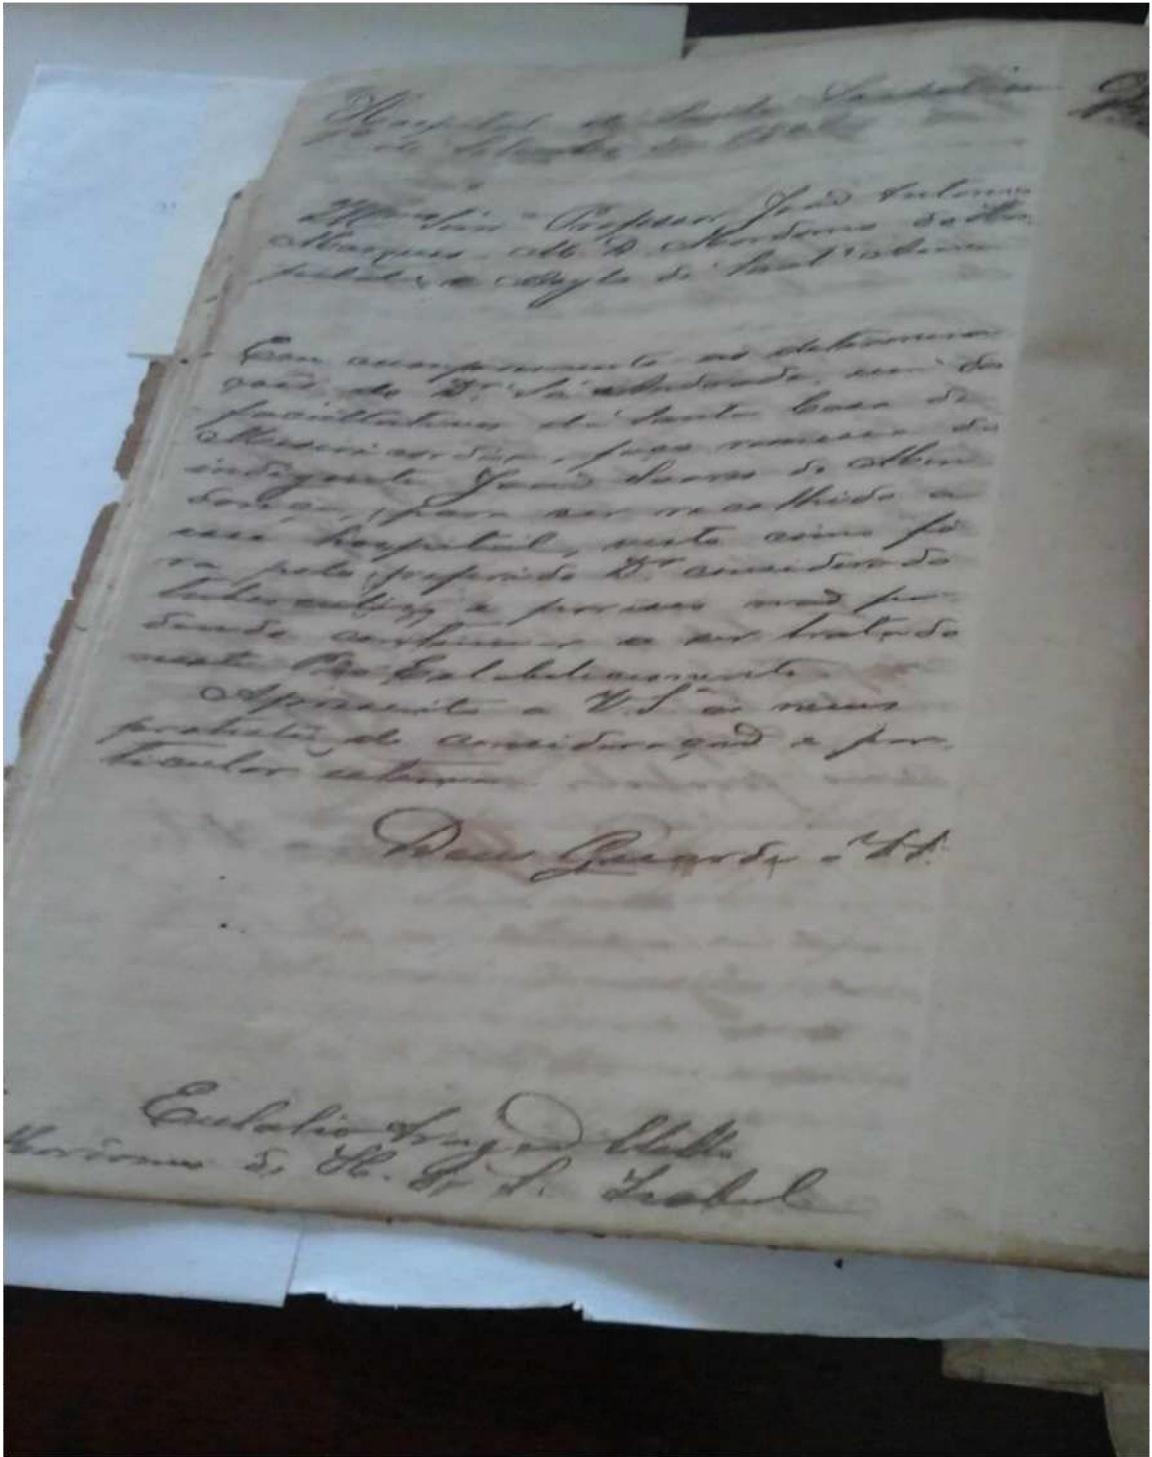 Hospital de Santa Isabel
de Setembro de
Illmo Snr Professor João Antonio
Marques. M. D. Mordomo do Hos
pital e Asylo de Sant'Anna
Em cumprimento as determina
ções do Dr. Sá Andrade, um dos
facultativos da Santa Casa de
Misericordia, faço remessa do
indigente João Soares de Men
donça, para ser recolhido a
esse hospital, visto como fo
ra pelo referido Dr. considerado
tuberculoso e por isso não po
dendo continuar a ser tratado
neste Pio Estabelecimento.
Apresento a V. Sª os meus
protestos de consideração e par
ticular estima
Deus Guarde a V.S.
Eulalio Aragão Mello
Mordomo do H. de S. Isabel